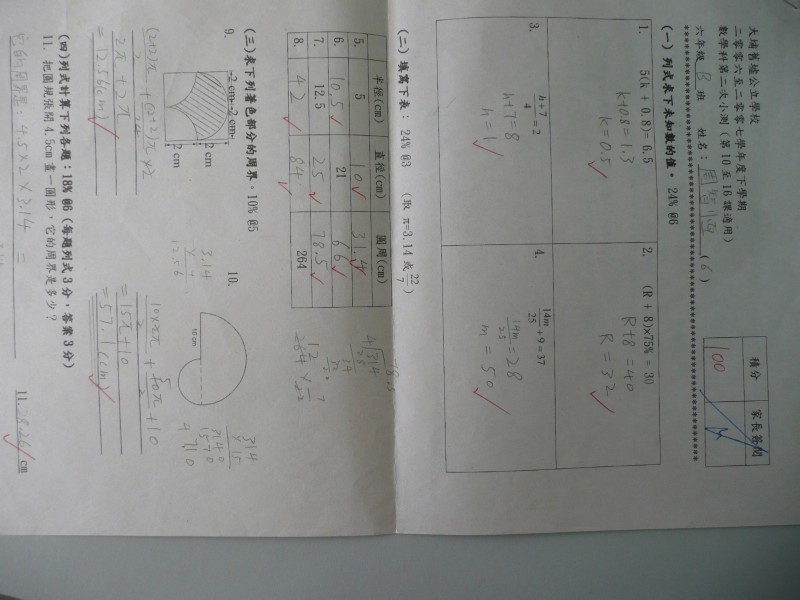 大埔舊墟公立學校
二零零六至二零零七學年度下學期
數學科第二次小測（第10至16課適用）
六年級 B 班 姓名：(6)
積分 家長簽閱
100
(一) 列式求下未知數的值。 24% @6
1. 5(k + 0.8)= 6.5
k+0.8=1.3
k=0.5
2. (R + 8)×75% = 30
R+8=40
R=32
3. h+7/4 = 2
h+7=8
h=1
4. 14m/25 + 9 = 37
14m/25 = 28
m=50
(二) 填寫下表： 24% @3 （取 π=3.14 或 22/7）
半徑(cm) 直徑(cm) 圓周(cm)
5. 5 10 31.4
6. 10.5 21 66
7. 12.5 25 78.5
8. 42 84 264
(三) 求下列著色部分的周界。10% @5
9.
2 cm 2 cm
2 cm
2 cm
= 12.56(cm)
10.
10 cm
= 15π+10
= 57.1(cm)
3.14
12.56
314
×15
1570
3140
4710
(四) 列式計算下列各題：18% @6（每題列式3分，答案3分）
11. 把圓規張開 4.5cm 畫一圓形，它的周界是多少？
它的周界是：4.5×2×3.14 =
11. 28.26 cm